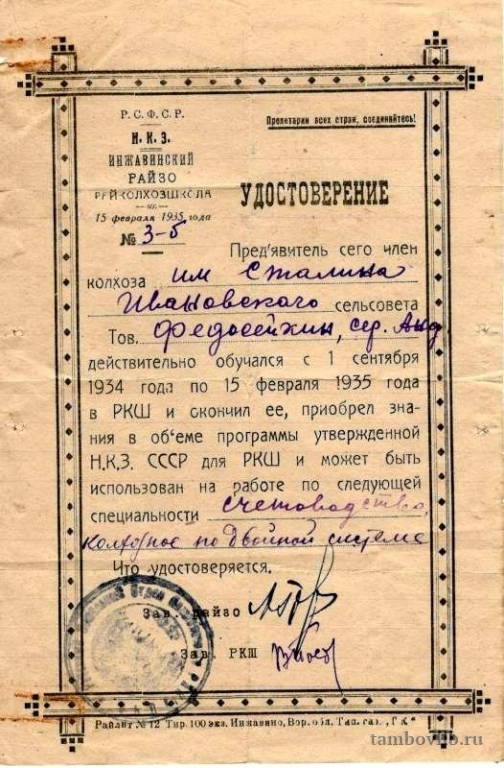 Р.С.Ф.С.Р.
Н.К.З.
ИНЖАВИНСКИЙ
РАЙЗО
РАЙКОЛХОЗШКОЛА
15 февраля 1935 года
№ 3-б
Пролетарии всех стран, соединяйтесь!
УДОСТОВЕРЕНИЕ
Пред'явитель сего член
колхоза им Сталина
Ивановского сельсовета
Тов. Федосейкин, сер. Анд.
действительно обучался с 1 сентября
1934 года по 15 февраля 1935 года
в РКШ и окончил ее, приобрел зна-
ния в об'еме программы утвержденной
Н.К.З. СССР для РКШ и может быть
использован на работе по следующей
специальности счетоводство,
колхозное по двойной система
Что удостоверяется.
Зав. райзо
Зав. РКШ
Райлит № 12 Тир. 100 экз. Инжавино, Вор. обл. Тип. газ.
tambovlib.ru